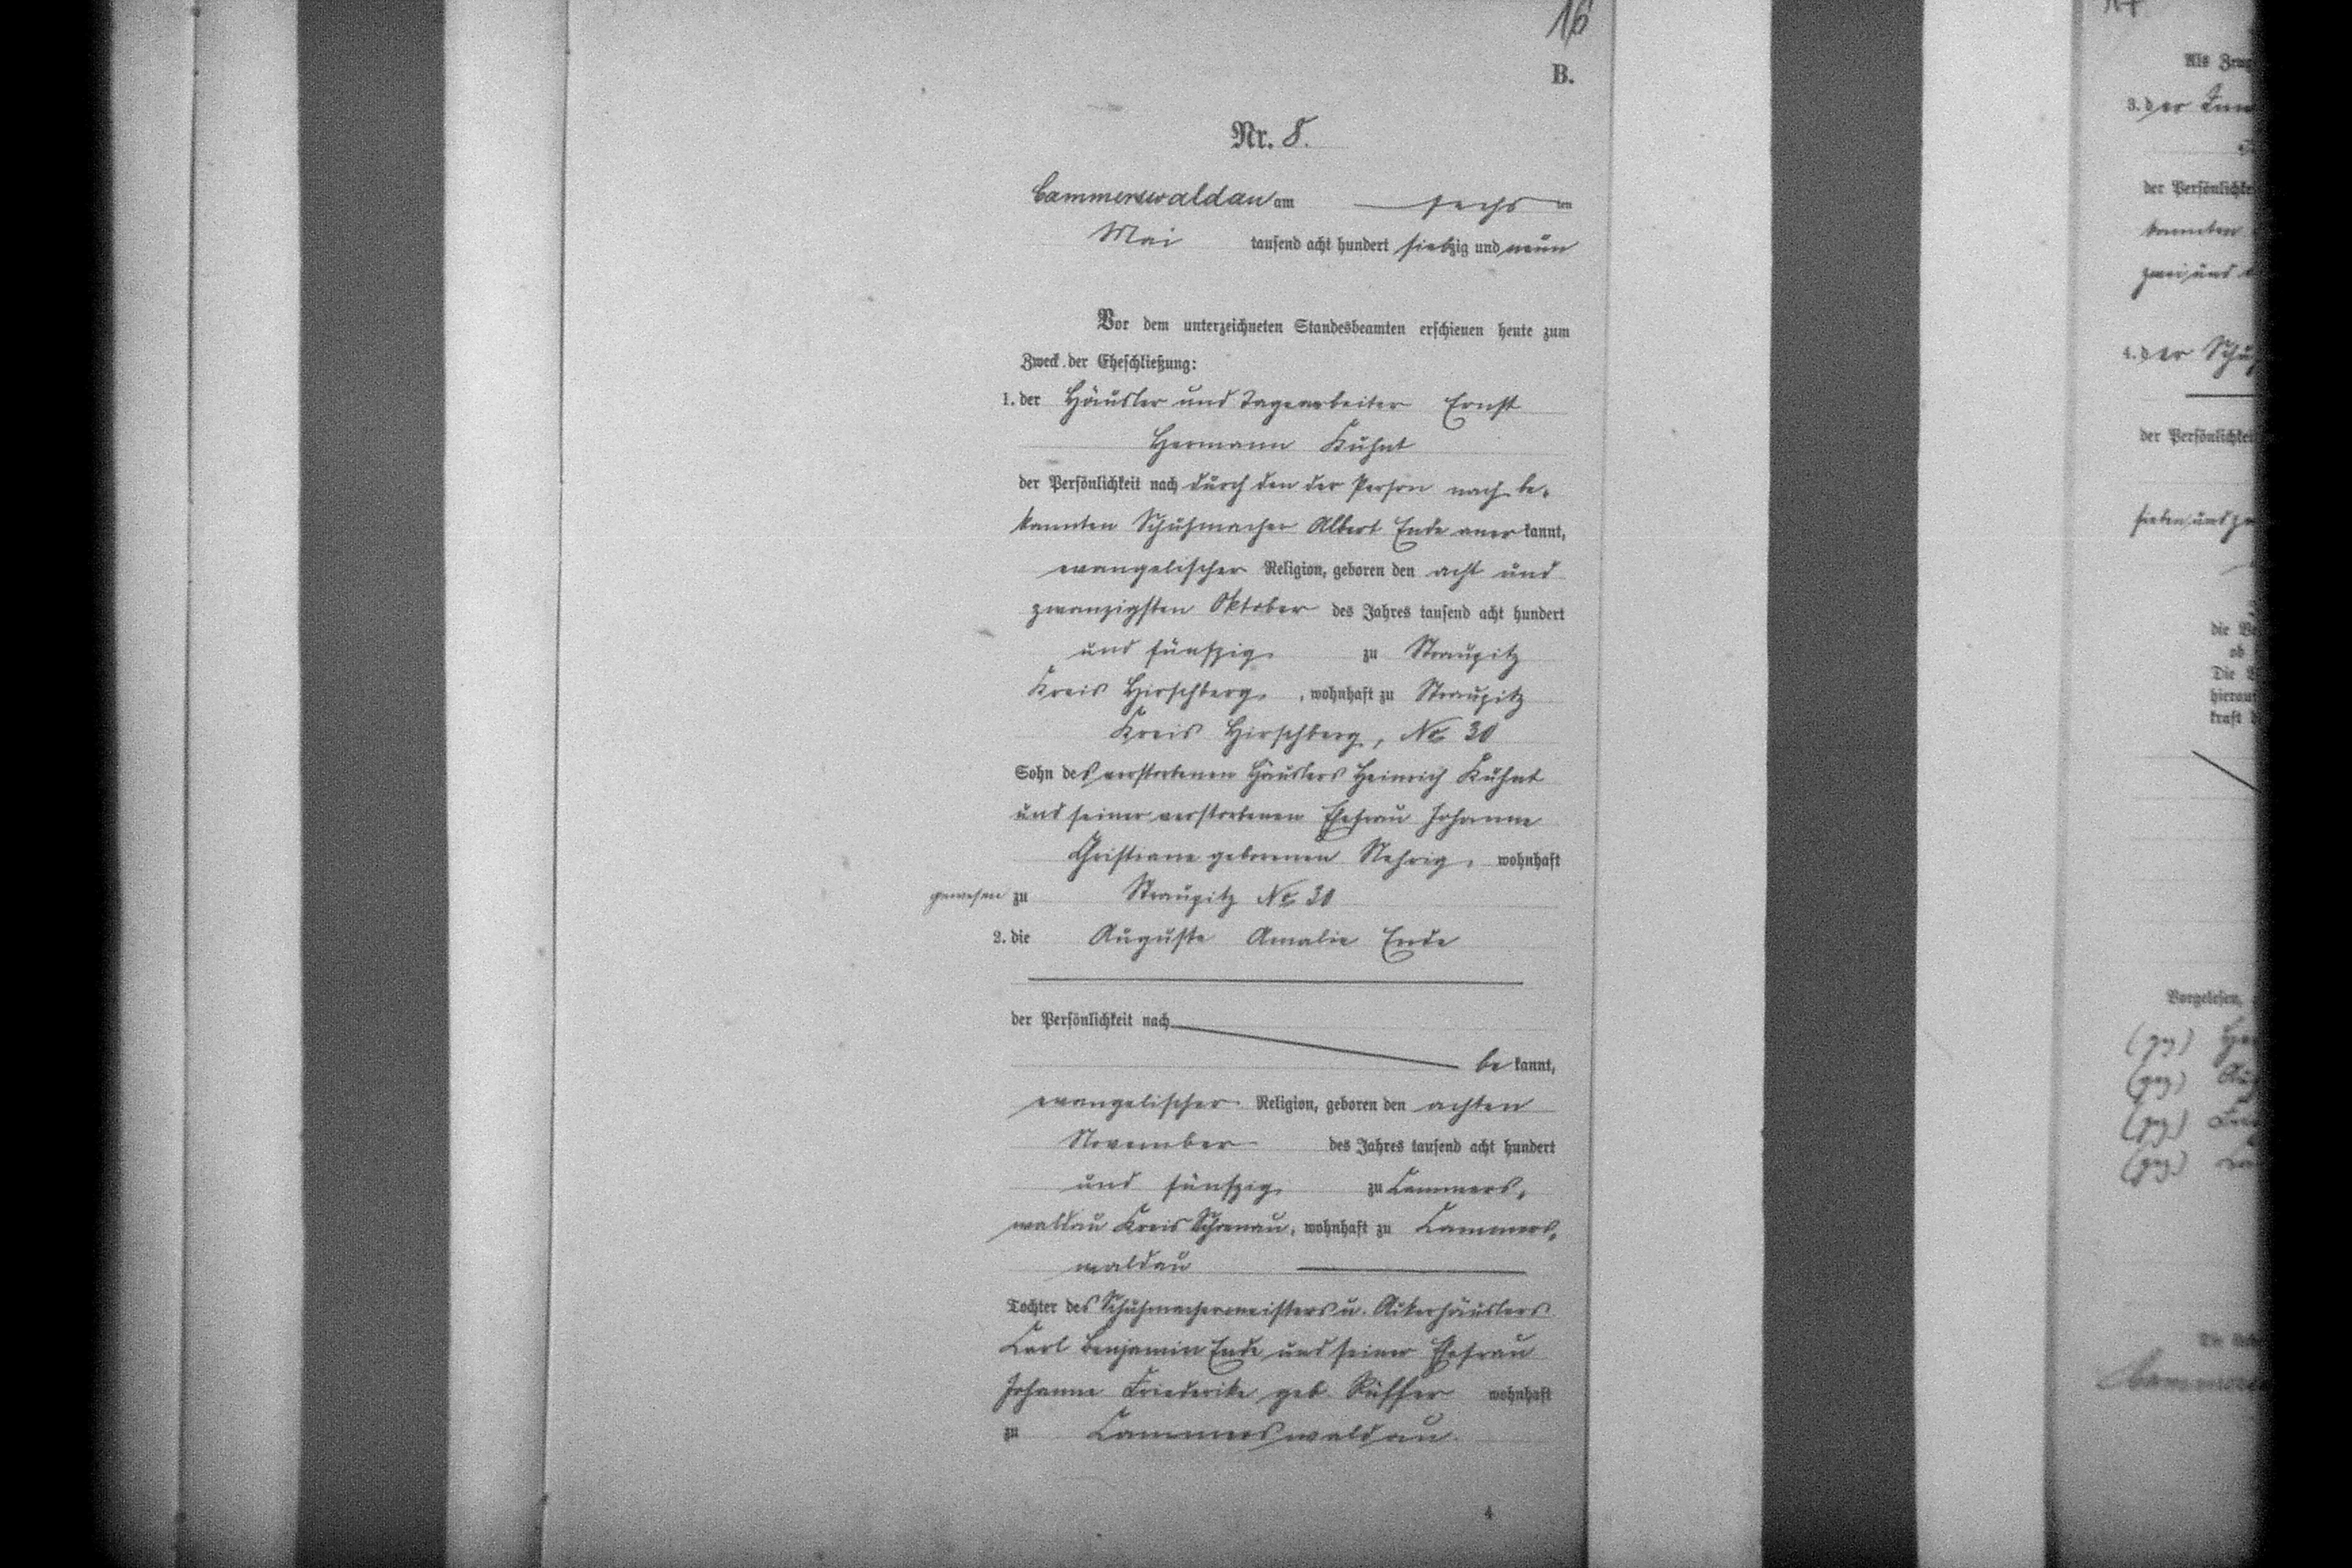 16
B.
Nr. 8.
Cammerswaldau am sechsten
Mai tausend acht hundert siebzig und neun
Vor dem unterzeichneten Standesbeamten erschienen heute zum
Zweck der Eheschließung:
1. der Häusler und Tagearbeiter Ernst
Hermann Kuhnt
der Persönlichkeit nach durch den der Person nach be-
kannten Schuhmacher Albert Ende anerkannt,
evangelischer Religion, geboren den acht und
zwanzigsten Oktober des Jahres tausend acht hundert
und fünfzig zu Straupitz
Kreis Hirschberg, wohnhaft zu Straupitz
Kreis Hirschberg, No 30
Sohn des verstorbenen Häuslers Heinrich Kuhnt
und seiner verstorbenen Ehefrau Johanne
Christiane geborenen Nehrig, wohnhaft
gewesen zu Straupitz No 30
2. die Auguste Amalie Ende
der Persönlichkeit nach
bekannt,
evangelischer Religion, geboren den achten
November des Jahres tausend acht hundert
und fünfzig zu Cammers-
waldau Kreis Schoenau, wohnhaft zu Cammers-
waldau
Tochter des Schuhmachermeisters u. Ackerhäuslers
Carl Benjamin Ende und seiner Ehefrau
Johanne Friederike geb. Rüffer wohnhaft
zu Cammerswaldau.
4
17
Als
3. der
der
kannten
zwei und
4. der
der
sieben und
die
ob
Die
hierauf
kraft
Vorgelesen,
(gez)
(gez)
(gez)
(gez)